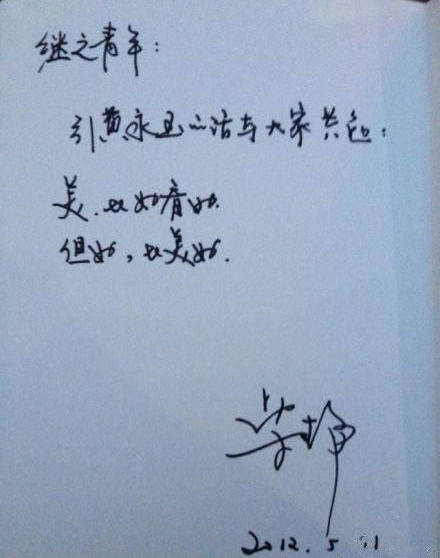 继之青年：
引黄永玉的话与大家共勉：
美，比好看好.
但好，比美好.
柴静
2012.5